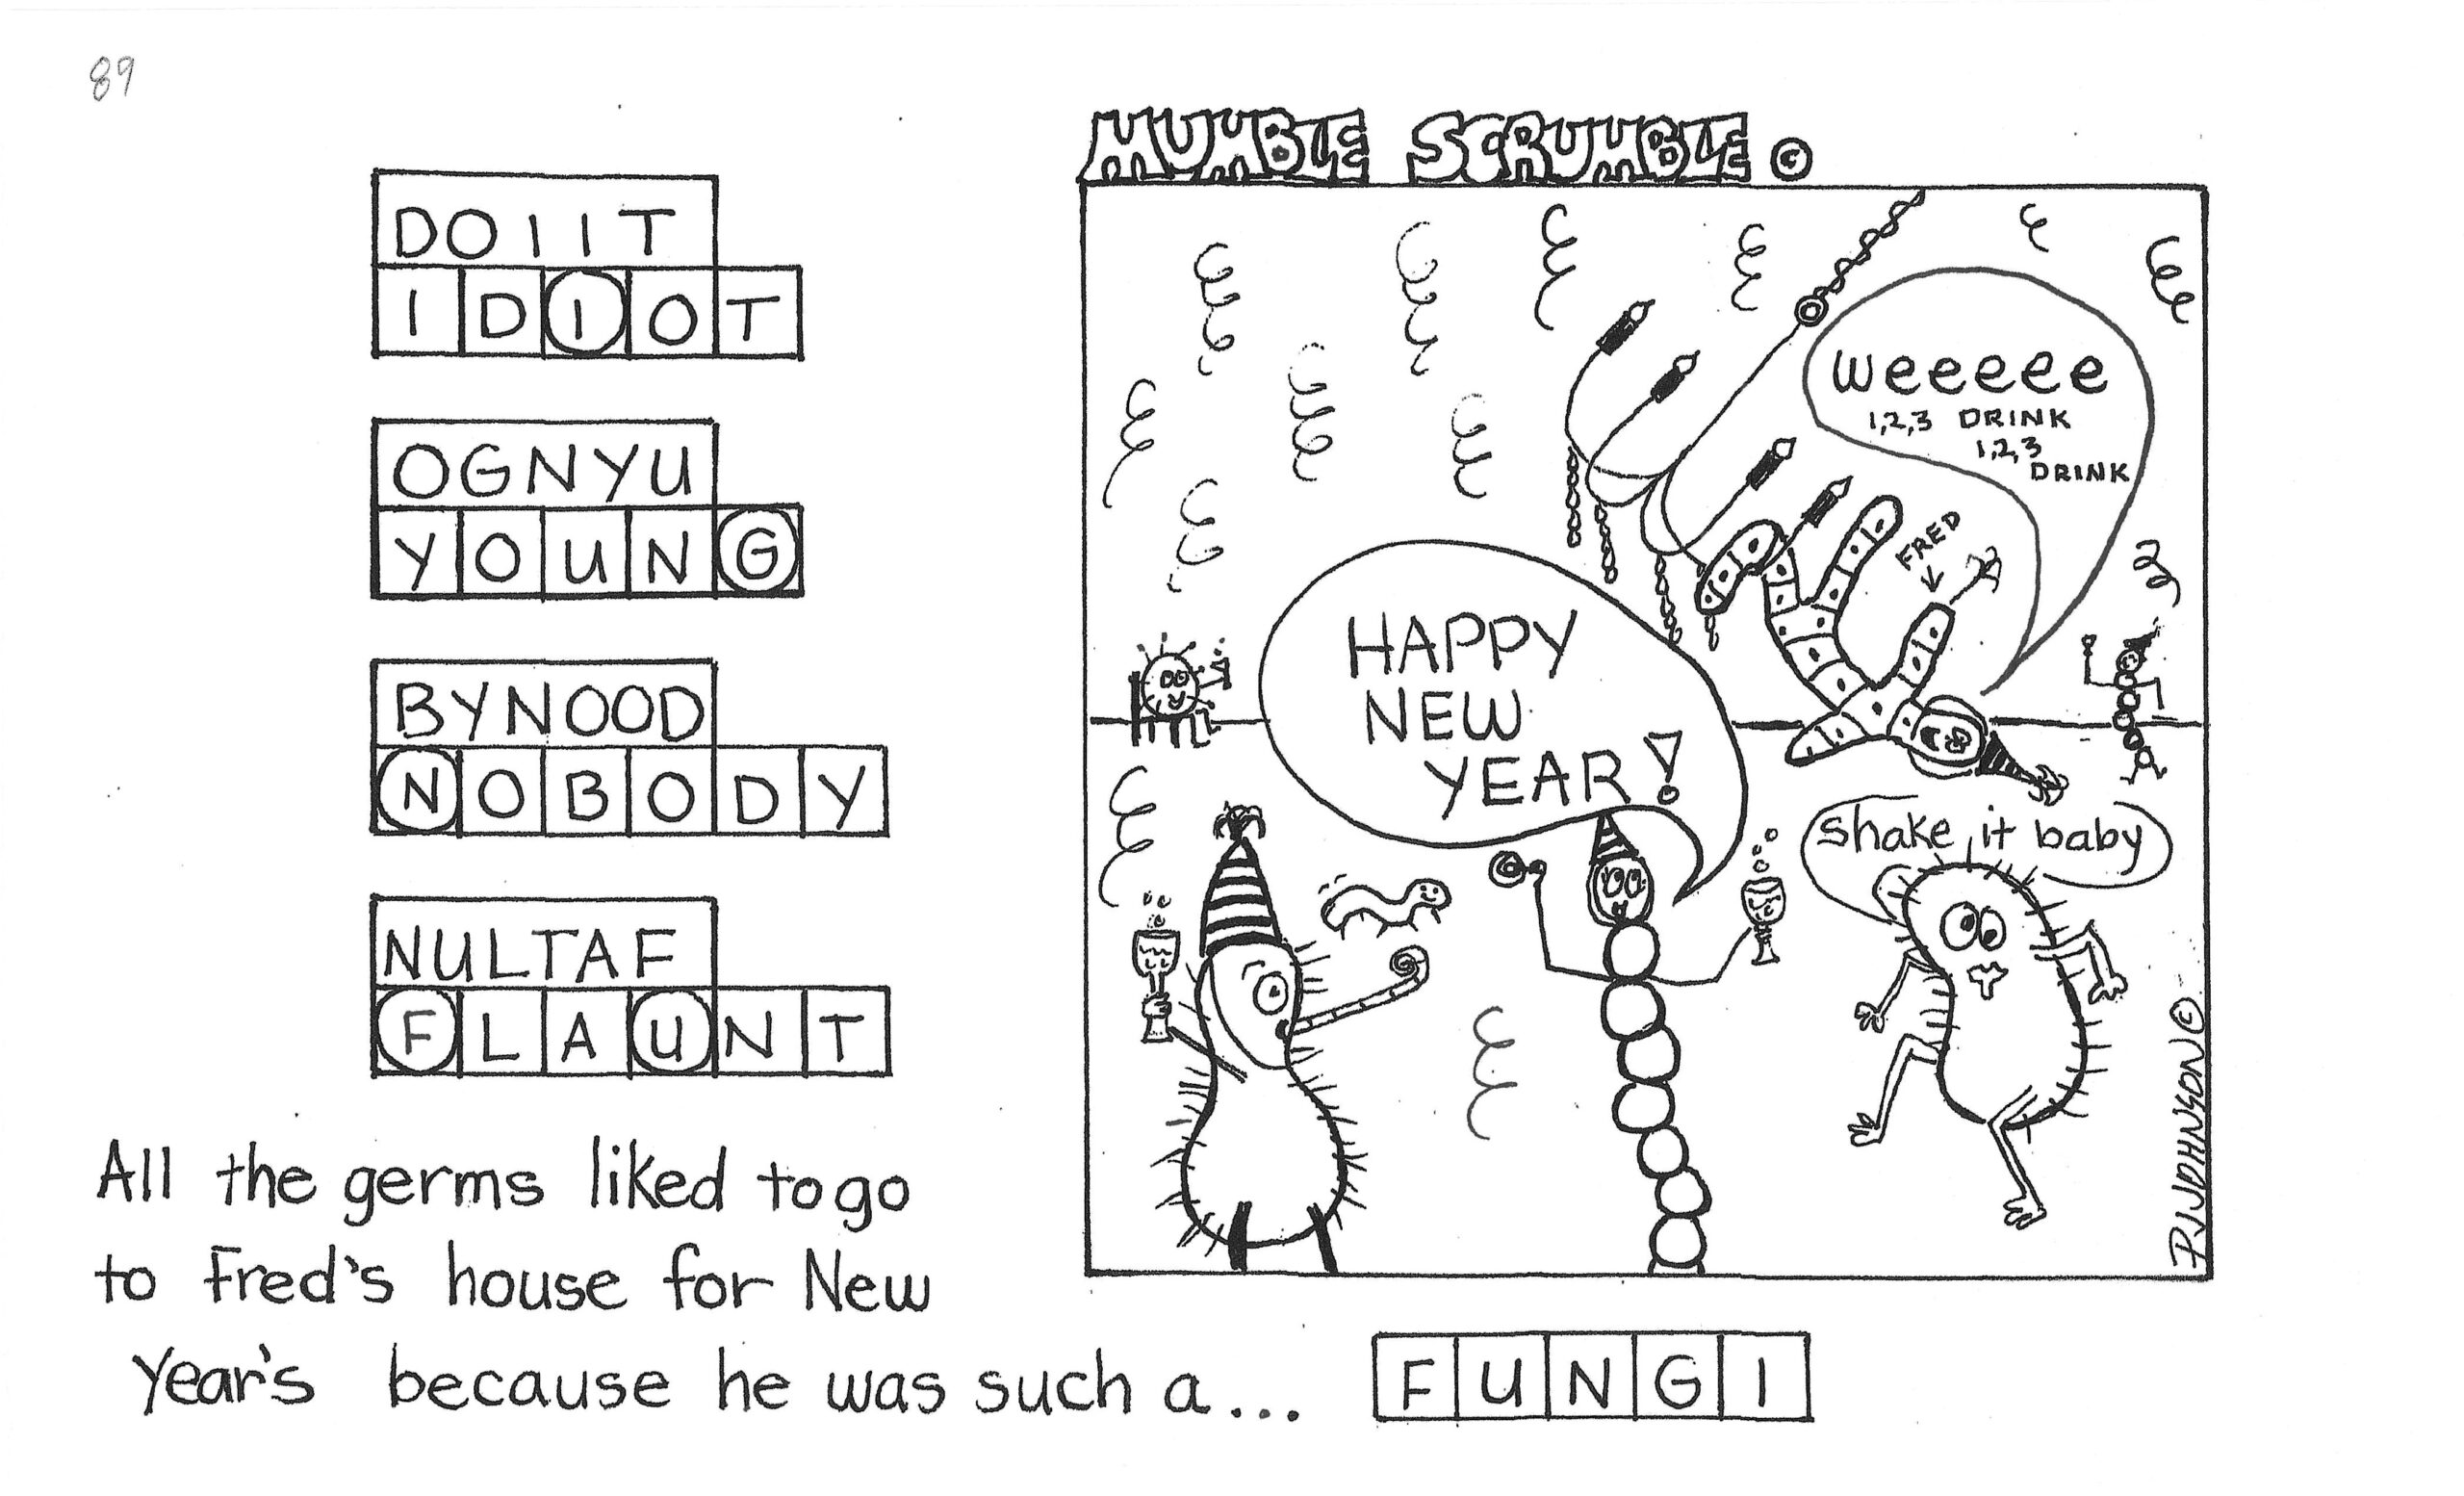 89
MUMBLE SCRUMBLE ©
DOIIT
IDIOT
OGNYU
YOUNG
BYNOOD
NOBODY
NULTAF
FLAUNT
weeeee
1,2,3 DRINK
1,2,3
DRINK
FRED
HAPPY
NEW
YEAR!
shake it baby
PJJOHNSON ©
All the germs liked to go
to Fred's house for New
Year's because he was such a... FUNGI